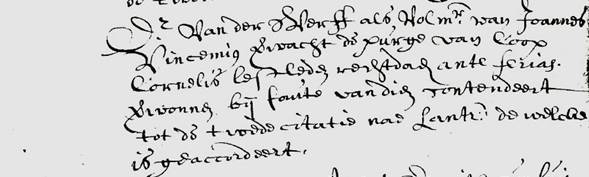 Dr. Van der Werff als Volmr. van Joannes
Vincemius verwacht de purge van Coop
Cornelis lestleden rechtdach ante ferias.
bij faute van dien contendeert
tot de twede citatie nae Lantr. de welcke
is geaccordeert.